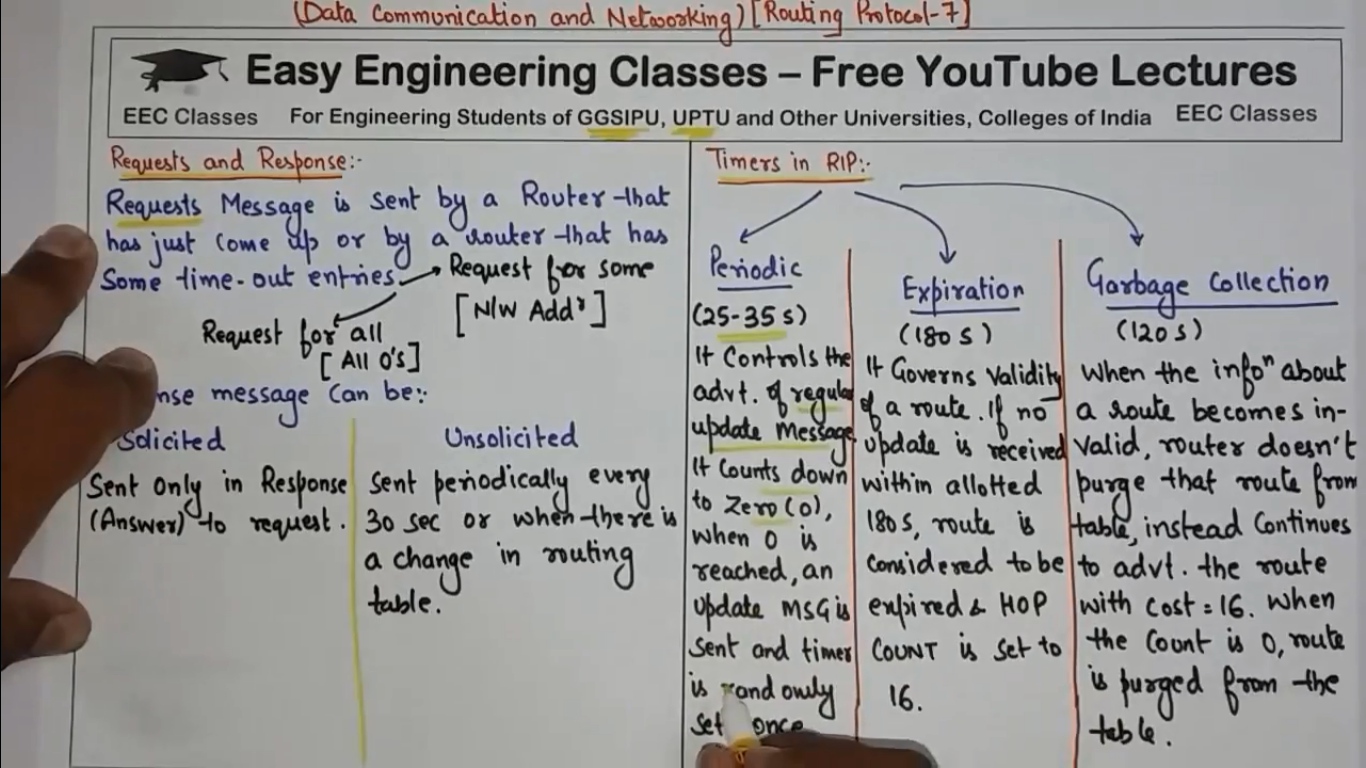 (Data Communication and Networking) [Routing Protocol-7]
Easy Engineering Classes – Free YouTube Lectures
EEC Classes For Engineering Students of GGSIPU, UPTU and Other Universities, Colleges of India EEC Classes
Requests and Response:-
Requests Message is sent by a Router that
has just come up or by a router that has
Some time-out entries
Request for some
[N/W Addr]
Request for all
[All 0's]
nse message can be:-
Solicited
Sent only in Response
(Answer) to request.
Unsolicited
Sent periodically every
30 sec or when there is
a change in routing
table.
Timers in RIP:-
Periodic
(25-35 s)
It Controls the
advt. of regular
update Message
It Counts down
to Zero (0),
when 0 is
reached, an
update MSG is
sent and timer
is randomly
set once
Expiration
(180 s)
It Governs Validity
of a route. If no
update is received
within allotted
180s, route is
considered to be
expired & HOP
COUNT is set to
16.
Garbage Collection
(120 s)
When the infoⁿ about
a route becomes in-
valid, router doesn't
purge that route from
table, instead continues
to advt. the route
with cost = 16. When
the Count is 0, route
is purged from the
table.